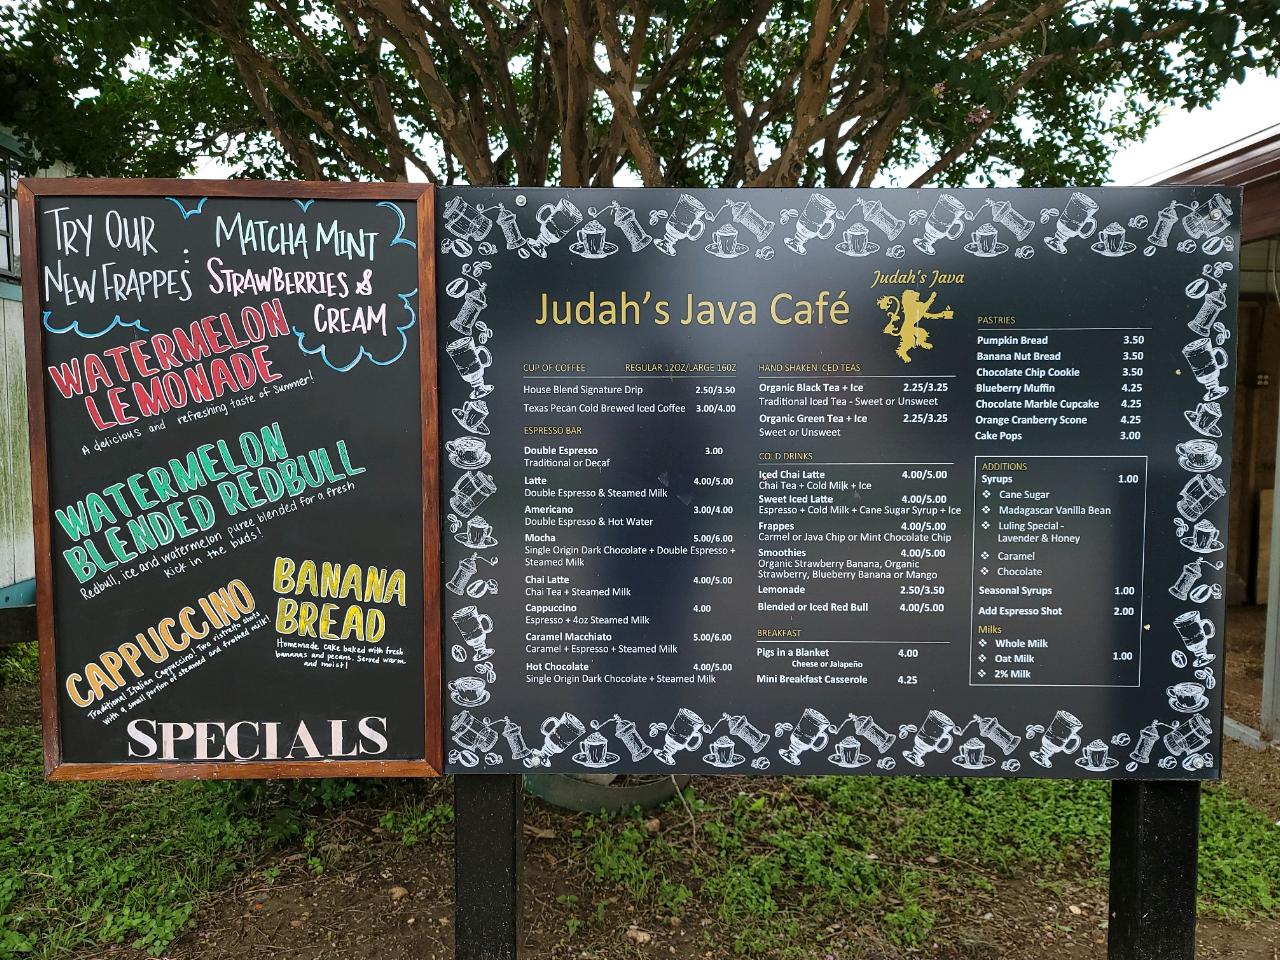 TRY OUR
NEW FRAPPES:
MATCHA MINT
STRAWBERRIES &
CREAM
WATERMELON
LEMONADE
A delicious and refreshing taste of Summer!
WATERMELON
BLENDED REDBULL
Redbull, ice and watermelon puree blended for a fresh
kick in the buds!
CAPPUCCINO
Traditional Italian Cappuccino! Two ristretto shots
with a small portion of steamed and frothed milk!
BANANA
BREAD
Homemade cake baked with fresh
bananas and pecans. Served warm
and moist!
SPECIALS
Judah's Java Café
Judah's Java
CUP OF COFFEE REGULAR 12OZ/LARGE 16OZ
House Blend Signature Drip 2.50/3.50
Texas Pecan Cold Brewed Iced Coffee 3.00/4.00
ESPRESSO BAR
Double Espresso 3.00
Traditional or Decaf
Latte 4.00/5.00
Double Espresso & Steamed Milk
Americano 3.00/4.00
Double Espresso & Hot Water
Mocha 5.00/6.00
Single Origin Dark Chocolate + Double Espresso +
Steamed Milk
Chai Latte 4.00/5.00
Chai Tea + Steamed Milk
Cappuccino 4.00
Espresso + 4oz Steamed Milk
Caramel Macchiato 5.00/6.00
Caramel + Espresso + Steamed Milk
Hot Chocolate 4.00/5.00
Single Origin Dark Chocolate + Steamed Milk
HAND SHAKEN ICED TEAS
Organic Black Tea + Ice 2.25/3.25
Traditional Iced Tea - Sweet or Unsweet
Organic Green Tea + Ice 2.25/3.25
Sweet or Unsweet
COLD DRINKS
Iced Chai Latte 4.00/5.00
Chai Tea + Cold Milk + Ice
Sweet Iced Latte 4.00/5.00
Espresso + Cold Milk + Cane Sugar Syrup + Ice
Frappes 4.00/5.00
Carmel or Java Chip or Mint Chocolate Chip
Smoothies 4.00/5.00
Organic Strawberry Banana, Organic
Strawberry, Blueberry Banana or Mango
Lemonade 2.50/3.50
Blended or Iced Red Bull 4.00/5.00
BREAKFAST
Pigs in a Blanket 4.00
Cheese or Jalapeño
Mini Breakfast Casserole 4.25
PASTRIES
Pumpkin Bread 3.50
Banana Nut Bread 3.50
Chocolate Chip Cookie 3.50
Blueberry Muffin 4.25
Chocolate Marble Cupcake 4.25
Orange Cranberry Scone 4.25
Cake Pops 3.00
ADDITIONS
Syrups 1.00
❖ Cane Sugar
❖ Madagascar Vanilla Bean
❖ Luling Special -
Lavender & Honey
❖ Caramel
❖ Chocolate
Seasonal Syrups 1.00
Add Espresso Shot 2.00
Milks
❖ Whole Milk
❖ Oat Milk 1.00
❖ 2% Milk